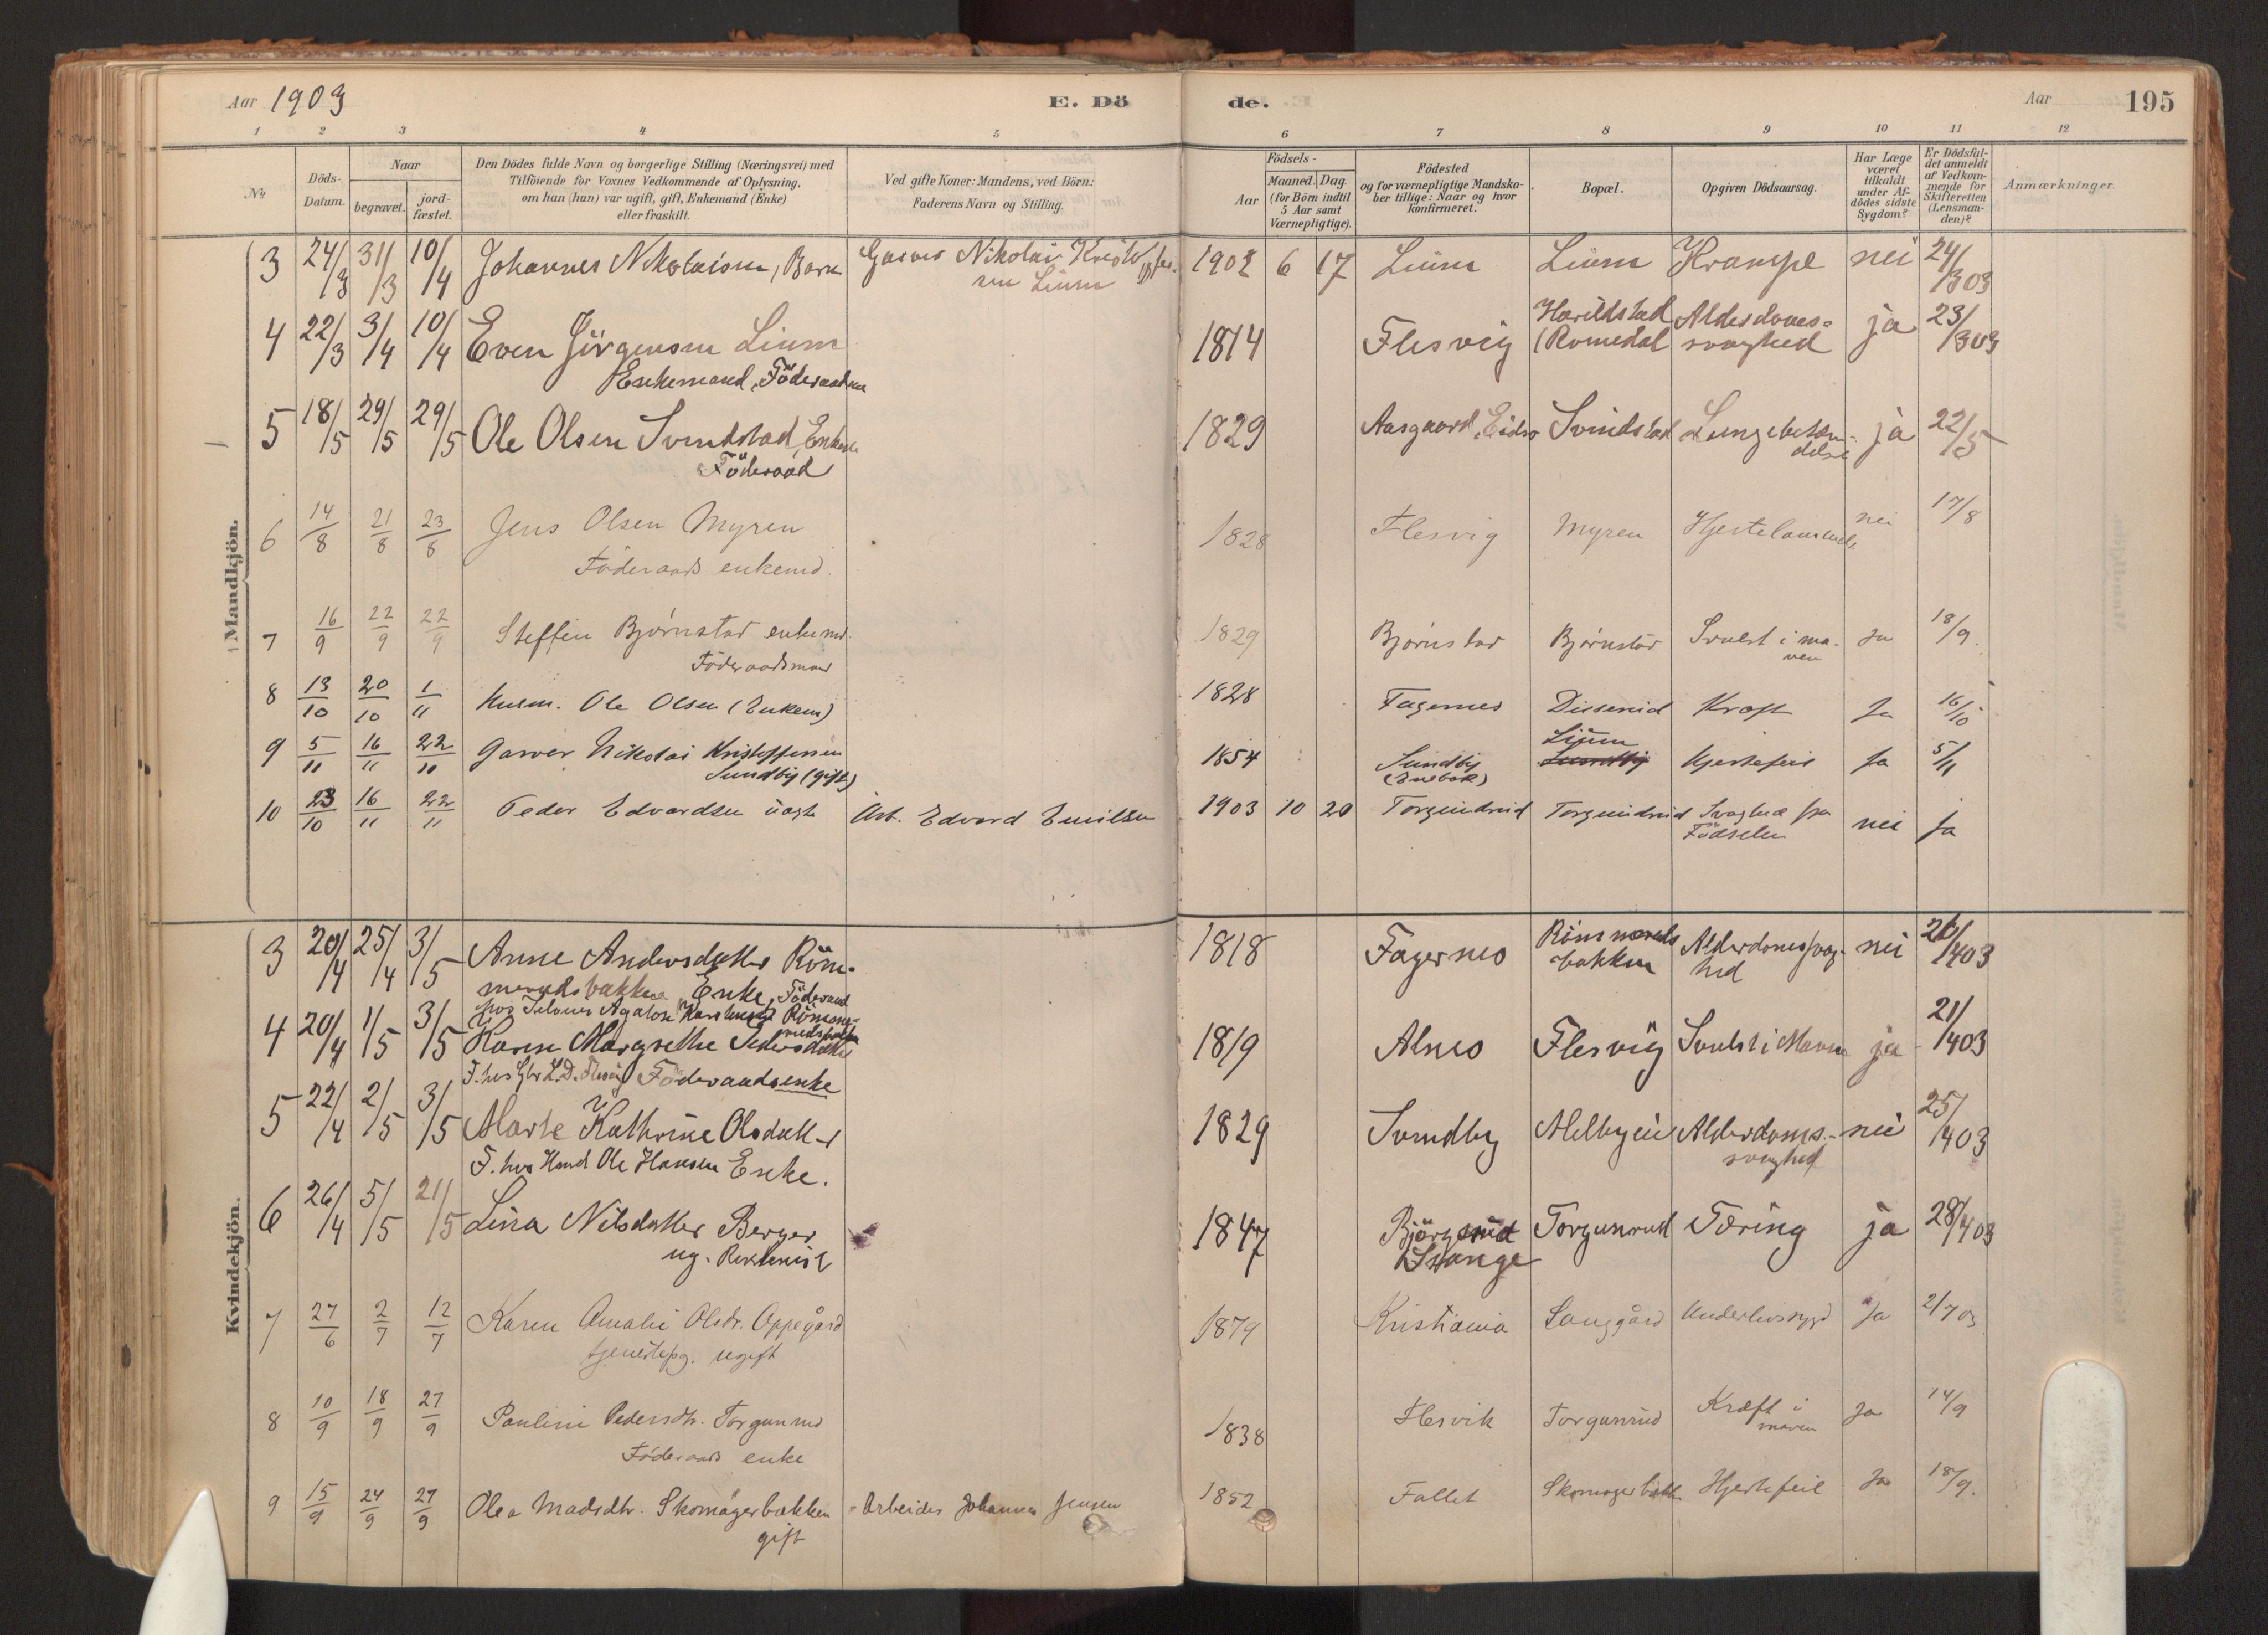 Aar 1903
E. Dö
de.
Aar
195
1 2 3 4 5 6 7 8 9 10 11 12
No
Döds-Datum.
Naar
begravet.
jord-fæstet.
Den Dödes fulde Navn og borgerlige Stilling (Næringsvei) med
Tilföiende for Voxnes Vedkommende af Oplysning,
om han (hun) var ugift, gift, Enkemand (Enke)
eller fraskilt.
Ved gifte Koner: Mandens, ved Börn:
Faderens Navn og Stilling.
Födsels-
Aar
Maaned. Dag.
(for Börn indtil
5 Aar samt
Værnepligtige).
Födested
og for værnepligtige Mandska-
ber tillige: Naar og hvor
konfirmeret.
Bopæl.
Opgiven Dödsaarsag.
Har Læge
været
tilkaldt
under Af-
dödes sidste
Sygdom?
Er Dödsfal-
det anmeldt
af Vedkom-
mende for
Skifteretten
(Lensman-
den)?
Anmærkninger.
Mandkjön.
3 24/3 31/3 10/4 Johannes Nikolaisen, Barn Garver Nikolai Kristoffer- 1902 6 17 Liüm Liüm Krampe nei 24/3 03
sen Liüm
4 22/3 3/4 10/4 Even Jörgensen Liüm 1814 Flesvig Harildstad Alderdoms- ja 23/3 03
(Romedal svaghed
Enkemand, Föderaadsm
5 18/5 29/5 29/5 Ole Olsen Svindstad, Enkem 1829 Aasgaard, Eidsv Svindstad Lungebetæn- ja 22/5
Föderaad delse
6 14/8 21/8 23/8 Jens Olsen Myren 1828 Flesvig Myren Hjertelammels. nei 17/8
Föderaads enkemd.
7 16/9 22/9 22/9 Steffen Bjørnstad enkemd. 1829 Bjørnstad Bjørnstad Svulst i ma- Ja 18/9.
Föderaadsmand ven
8 13/10 20/10 1/11 Husm. Ole Olsen (Enkem) 1828 Fagernes Disserud Kræft Ja 16/10
9 5/11 16/11 22/11 Garver Nikolai Kristoffersen 1854 Sundby Liüm Hjertefeil Ja 5/11
Sundby (gift) (Enebak) Sundby
10 23/10 16/11 22/11 Peder Edvardsen üægte Arb. Edvard Emilsen 1903 10 20 Torgundrud Torgundrud Svaghed fra nei ja
Födselen
Kvindekjön.
3 20/4 25/4 3/5 Anne Andersdatter Röm- 1818 Fagernes Römmeruds Alderdomssvag- nei 20/4 03
merudsbakken Enke, Föderaad bakken hed
4 20/4 1/5 3/5 Karen Margrethe Pedersdatter 1819 Alnes Flesvig Svulst i Maven ja 21/4 03
Föderaadsenke
5 22/4 2/5 3/5 Marte Kathrine Olsdatter 1829 Svindby Melbyeie Alderdoms- nei 25/4 03
F. hos Husmd Ole Hansen Enke. svaghed
6 26/4 5/5 21/5 Lina Nilsdatter Berger 1847 Björgerüd Torgunrud Tæring ja 28/4 03
ug. Stange
7 27/6 2/7 12/7 Karen Amalie Olsdr. Oppegård 1879 Kristiania Langgård Underlivssygd Ja 2/7 03
tjenestepg. ugift
8 10/9 18/9 27/9 Pauline Pedersdtr. Torgunrud 1838 Flesvik Torgunrud Kræft i Ja 14/9
Föderaads enke maven
9 15/9 24/9 27/9 Olea Madsdtr. Skomagerbakken Arbeider Johannes Jensen 1852 Fallet Skomagerbakken Hjertefeil Ja 18/9.
gift